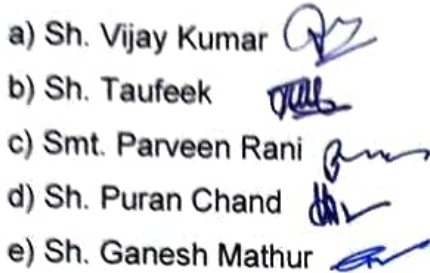 a) Sh. Vijay Kumar
b) Sh. Taufeek
c) Smt. Parveen Rani
d) Sh. Puran Chand
e) Sh. Ganesh Mathur